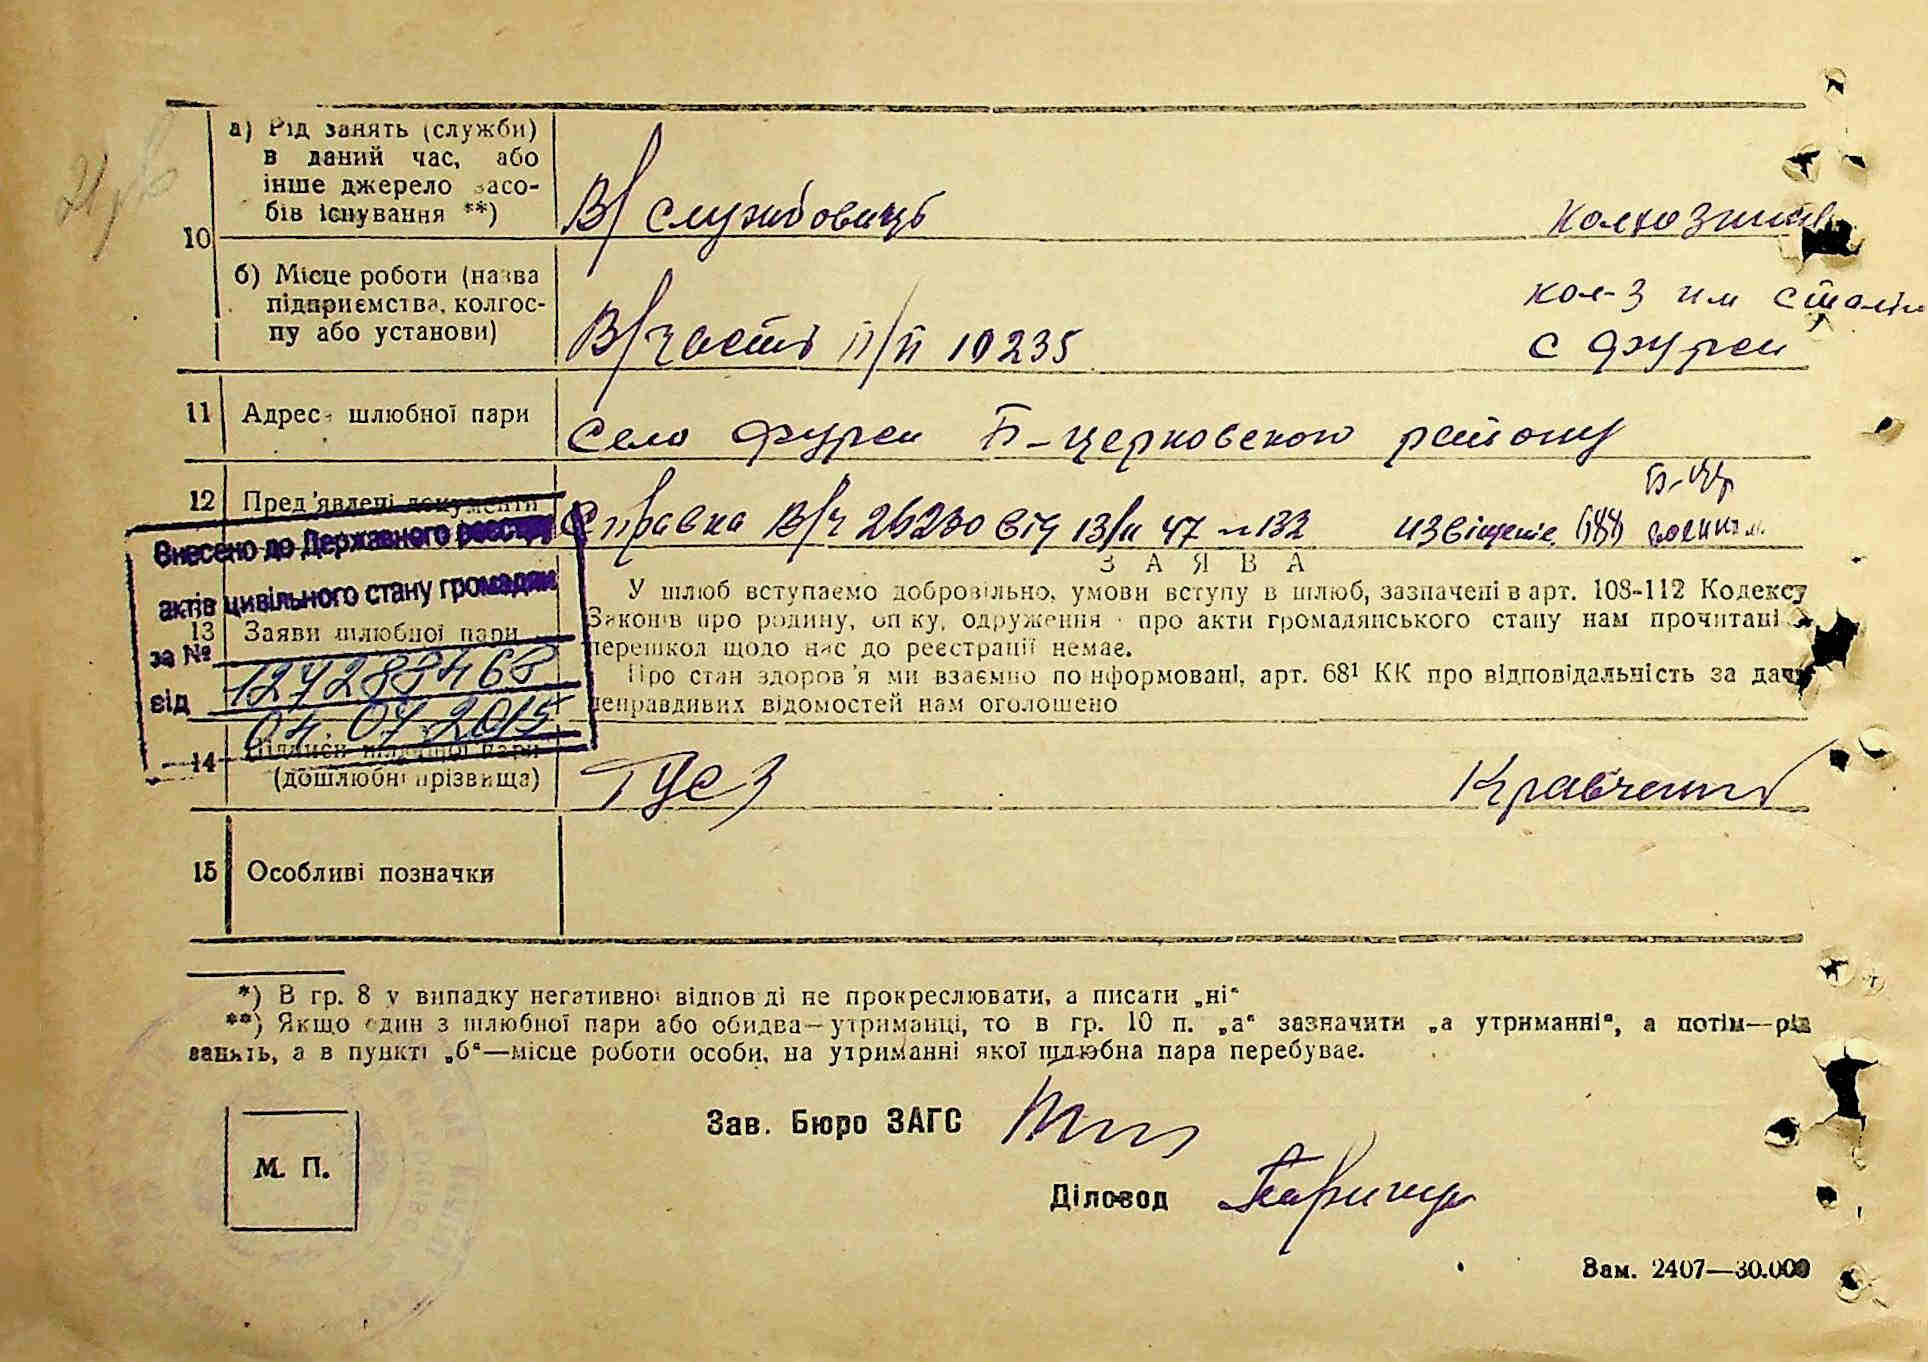 а) Рід занять (служби)
в даний час, або
інше джерело засо-
бів існування **)
В/службовець
колхозниця
10
б) Місце роботи (назва
підприємства, колгос-
пу або установи)
В/часть п/п 10235
кол-з им Сталін
с Фурси
11 Адреса шлюбної пари
Село Фурси Б-Церковского району
12 Пред'явлені документи
Справка В/ч 26230 від 13/II 47 № 132
извіщеніе
Б-Цер
Внесено до Державного реєстру
актів цивільного стану громадян
за №
від 04.07.2015
13 Заяви шлюбної пари
ЗАЯВА
У шлюб вступаємо добровільно, умови вступу в шлюб, зазначені в арт. 108-112 Кодексу
Законів про родину, опіку, одруження і про акти громадянського стану нам прочитані і
перешкод щодо нас до реєстрації немає.
Про стан здоров'я ми взаємно поінформовані, арт. 68¹ КК про відповідальність за дачу
неправдивих відомостей нам оголошено
14 Підписи шлюбної пари
(дошлюбні прізвища)
Гусз
Кравченко
15 Особливі позначки
*) В гр. 8 у випадку негативної відповіді не прокреслювати, а писати „ні“
**) Якщо один з шлюбної пари або обидва—утриманці, то в гр. 10 п. „а“ зазначити „а утриманні“, а потім—рід
занять, а в пункті „б“—місце роботи особи, на утриманні якої шлюбна пара перебуває.
Зав. Бюро ЗАГС
М. П.
Діловод
Зам. 2407—30.000